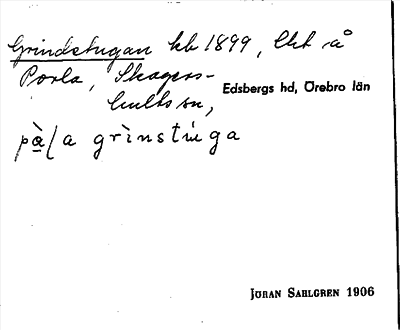 Grindstugan kb 1899, lht å
Porla, Skagers-
hults sn,
Edsbergs hd, Örebro län
på̱la grinstuga
Jöran Sahlgren 1906